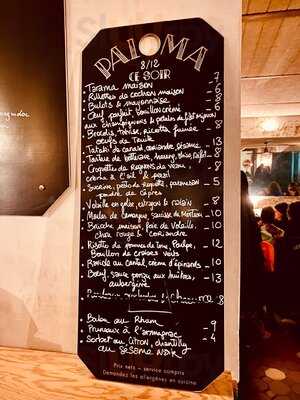 PALOMA
8/12
CE SOIR
Tarama maison 7
Rillettes de cochon maison 6
Bulots & mayonnaise 6
Œuf parfait, bouillon crémé
aux champignons & pétales de filet mignon 8
Brocolis, ricotta fumée 8
œufs de truite
Tataki de canard, sésame 13
Tartare de betterave, 8
Croquettes de Rognons de veau 8
crème à l'ail & persil
Sucrine, pesto de roquette, parmesan 5
poudre de câpres
Volaille en gelée, estragon & raisin 8
Moules de camargue, saucisse de Morteau 10
Brioche maison, foie de Volaille 10
chou rouge & coriandre
Risotto de pomme de terre, Poulpe 12
Bouillon de crosses
Ravioles au cantal, crème d'épinards 10
Bœuf, sauce aux huîtres 13
aubergine
8
Baba au Rhum
Pruneaux à l'armagnac 9
Sorbet au citron, chantilly 4
au sésame noir
Prix nets – service compris
Demandez les allergènes en cuisine